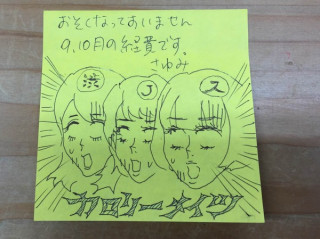 おそくなってすいません
9、10月の経費です。
さゆみ
渋 J ス
カロリーメイツ